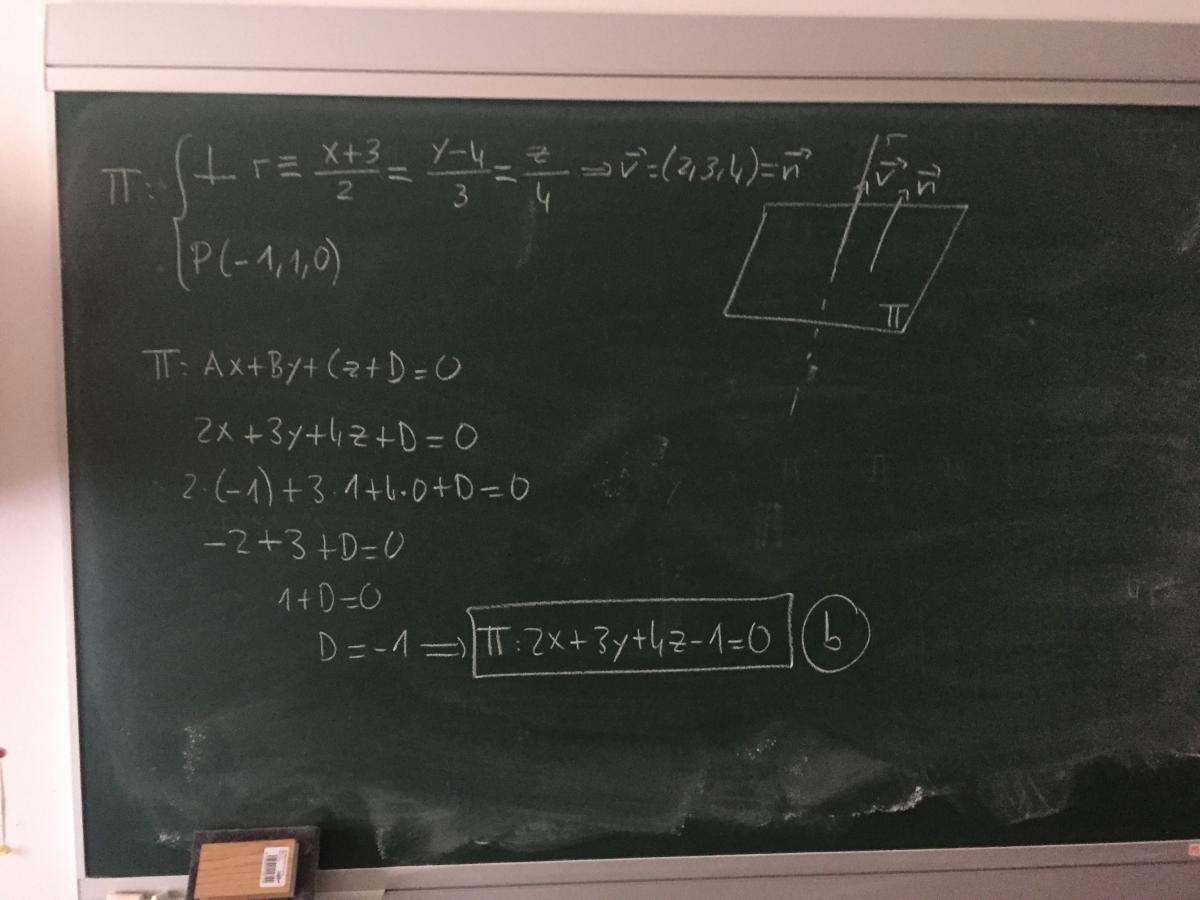 π: { ⊥ r ≡ x+3/2 = y-4/3 = z/4 ⇒ v⃗=(2,3,4)=n⃗
P(-1,1,0)
r
v⃗ n⃗
π
π: Ax+By+Cz+D=0
2x+3y+4z+D=0
2·(-1)+3·1+4·0+D=0
-2+3+D=0
1+D=0
D=-1 ⇒ π:2x+3y+4z-1=0 b